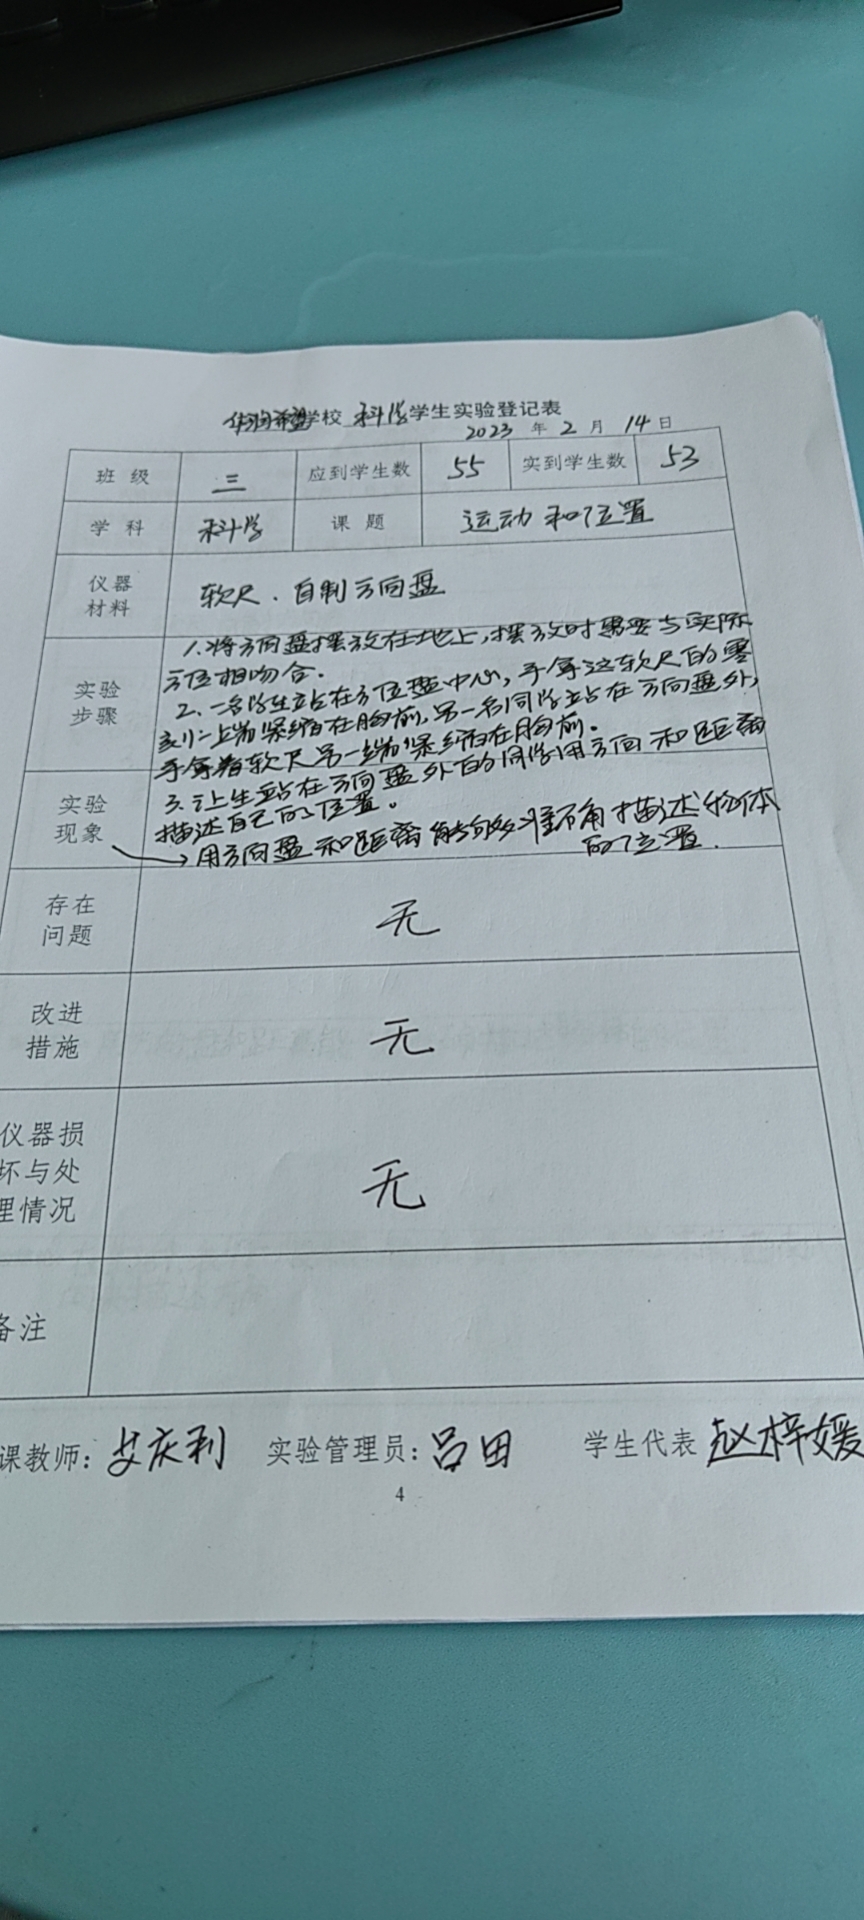 华润希望学校 科学学生实验登记表
2023 年 2 月 14 日
班 级 三 应到学生数 55 实到学生数 53
学 科 科学 课 题 运动和位置
仪器
材料
软尺、自制方向盘
实验
步骤
1.将方向盘摆放在地上,摆放时需要与实际
方位相吻合.
2.一名学生站在方位盘中心,手拿这软尺的零
刻一上端紧缩在胸前,另一名同学站在方向盘外,
手拿着软尺另一端紧缩在胸前。
3.让生站在方向盘外的同学用方向和距离
描述自己的位置。
实验
现象
用方向盘和距离能够准确描述物体
的位置.
存在
问题
无
改进
措施
无
仪器损
坏与处
理情况
无
备注
课教师: 艾庆利 实验管理员: 吕田 学生代表 赵梓媛
4